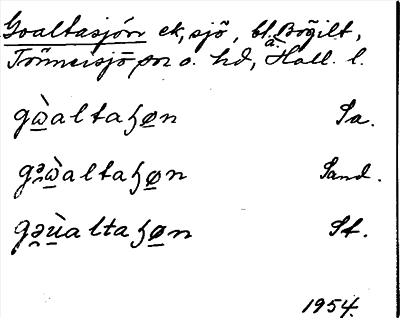 Goaltasjön ek, sjö, bl. Bögilt,
Tönnersjö sn o. hd, a. Hall. l.
gὼ̲altaɧø̲n Sa.
gə̯ὼ̲altaɧø̲n Sand.
gə̯ù̲altaɧø̲n St.
1954.